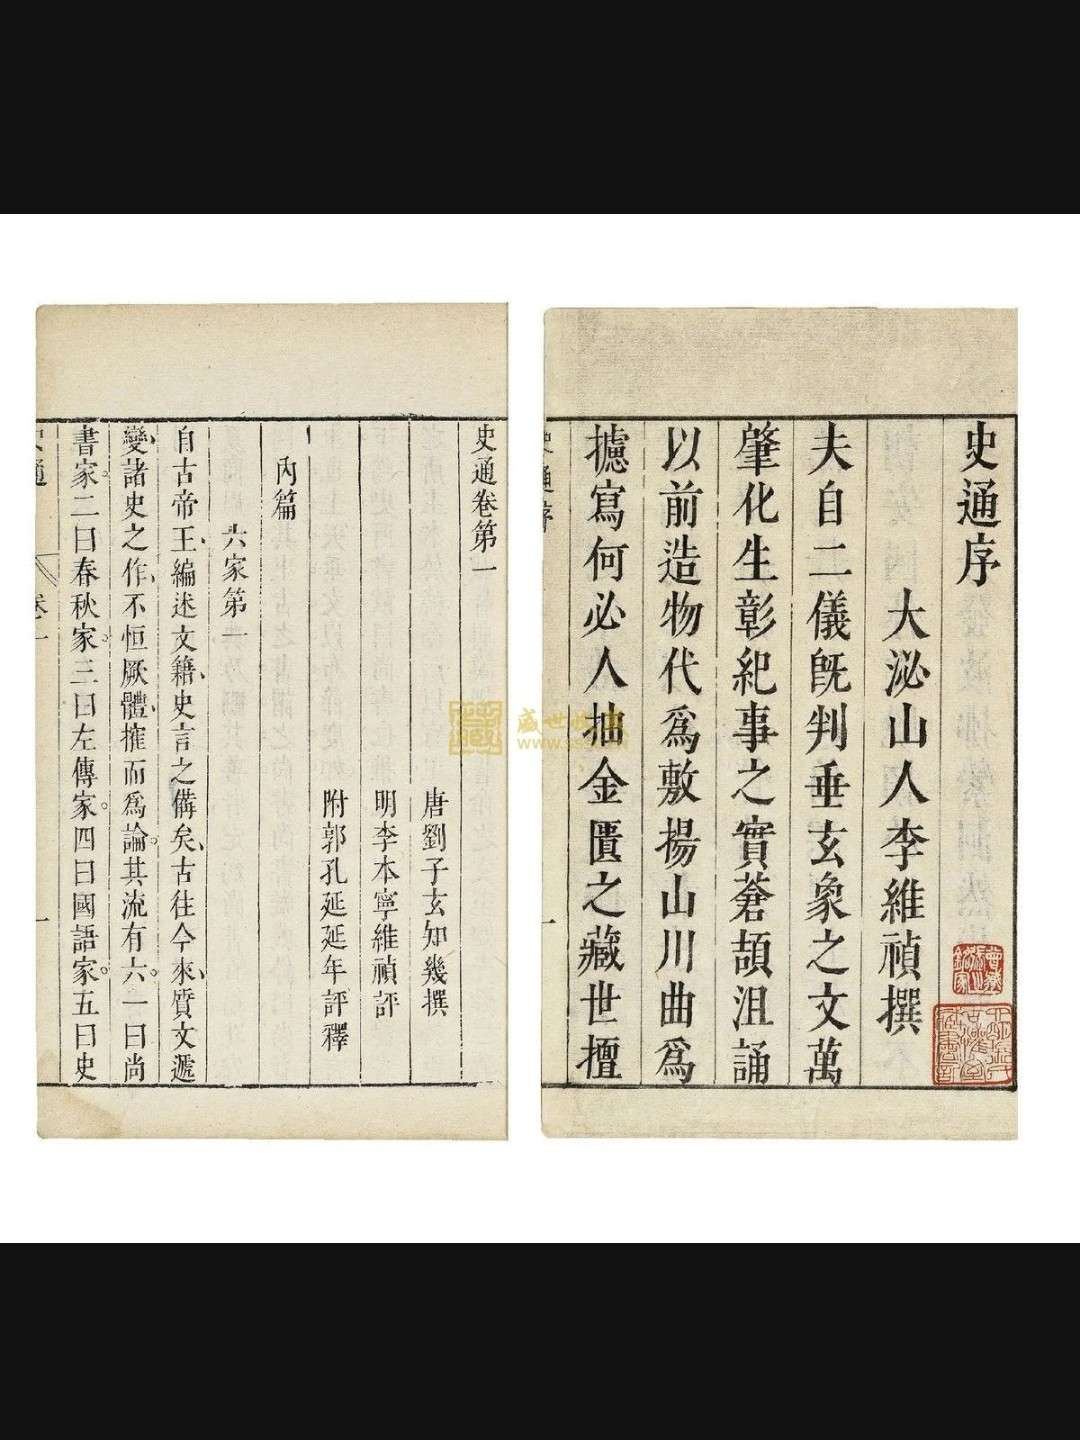 史通序
大泌山人李維禎撰
夫自二儀既判垂玄象之文萬
肇化生彰紀事之實蒼頡沮誦
以前造物代爲敷揚山川曲爲
攄寫何必人抽金匱之藏世擅
史通序
史通卷第一
唐劉子玄知幾撰
明李本寧維禎評
附郭孔延延年評釋
內篇
六家第一
自古帝王編述文籍史言之備矣古往今來質文遞
變諸史之作不恒厥體搉而爲論其流有六一曰尚
書家二曰春秋家三曰左傳家四曰國語家五曰史
史通
卷一
一
盛世收藏